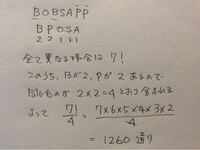 BOBSAPP
BPOSA
22111
全て異なる場合に 7!
このうち、Bが2, Pが2あるので
同じものが 2×2=4とおり含まれる
よって 7!/4 = 7×6×5×4×3×2/4
= 1260通り